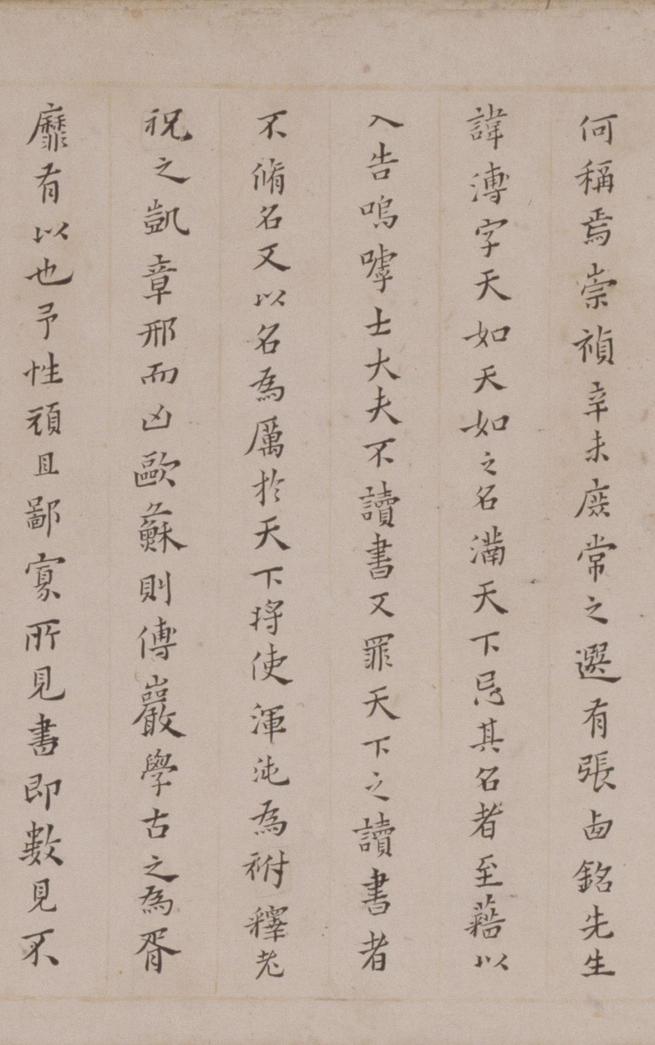 何稱焉崇禎辛未庶常之選有張卥銘先生
諱溥字天如天如之名滿天下忌其名者至藉以
入告嗚嘑士大夫不讀書又罪天下之讀書者
不脩名又以名為厲於天下将使渾沌為祔釋老
祝之凱章邢而凶歐蘇則傅巖學古之為胥
靡有以也予性頑且鄙寡所見書即數見不